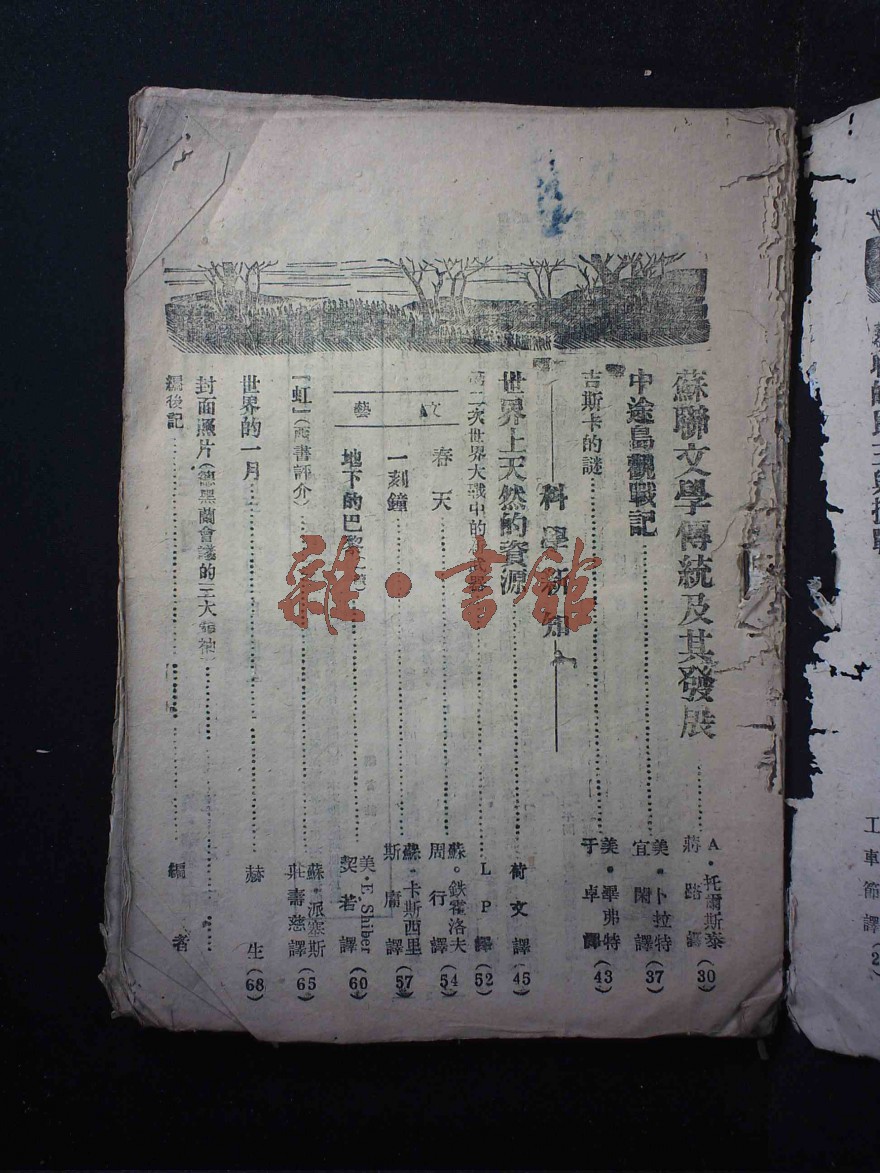 蘇聯文學傳統及其發展
A·托爾斯泰
蔣路譯(30)
中途島觀戰記
美·卜拉特
宜閑譯(37)
吉斯卡的謎
美·畢弗特
于卓譯(43)
科學新知
世界上天然的資源
荷文譯(45)
第二次世界大戰中的武器
L P 譯(52)
文藝
春天
蘇·鉄霍洛夫
周行譯(54)
一刻鐘
蘇·卡斯西里
斯庸譯(57)
地下的巴黎
美·E. Shiber
契若譯(60)
「虹」(西書評介)
蘇·派塞斯
莊壽慈譯(65)
世界的一月
赫生(68)
封面照片(德黑蘭會議的三大領袖
編後記
編者
雜·書館
工車節譯(2